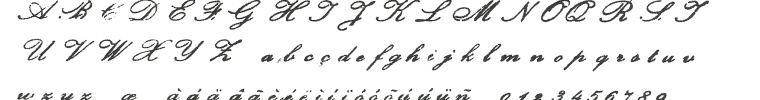 A B C D E F G H I J K L M N O Q R S T
U V W X Y Z a b c ç d e f g h i j k l m n o p q r s t u v
w x y z æ à á ä â ã è é ë ì í ï ó ô õ ú û ü ñ 0 1 2 3 4 5 6 7 8 9